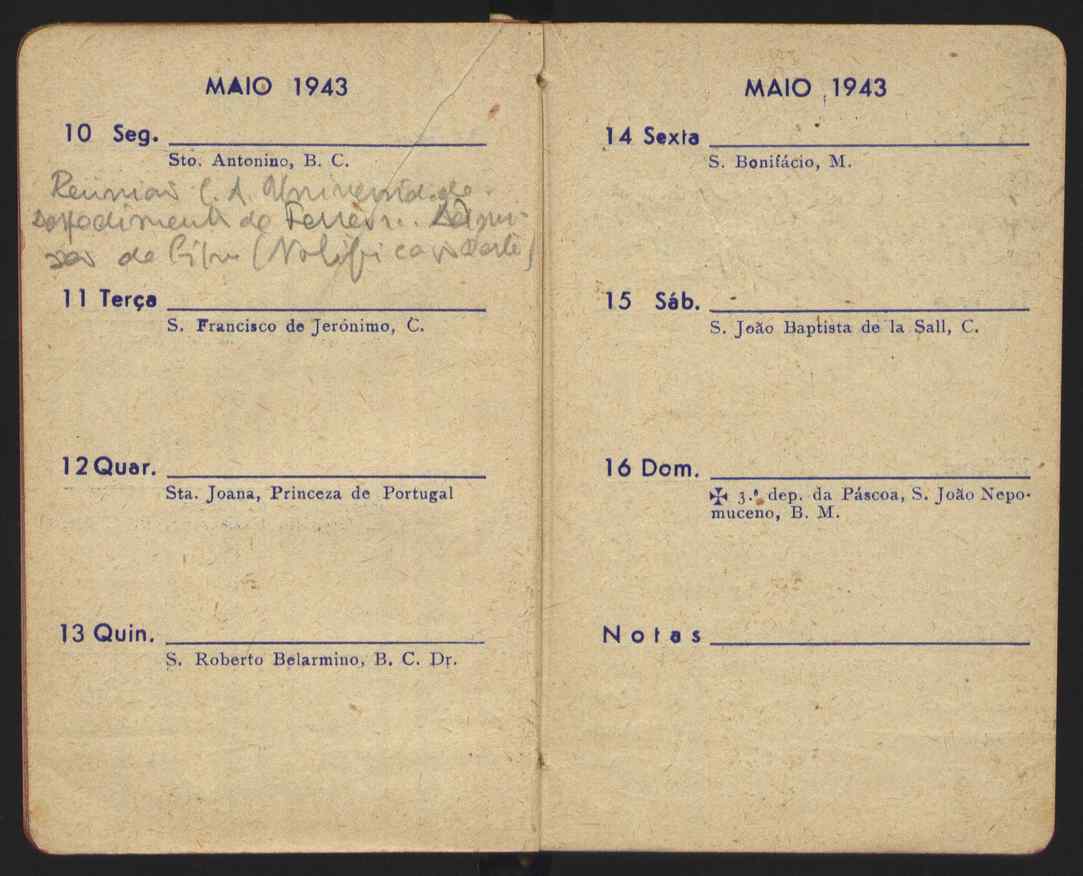 MAIO 1943
10 Seg.
Sto. Antonino, B. C.
Reunião C. A. Universidade.
do
de
11 Terça
S. Francisco de Jerónimo, C.
12 Quar.
Sta. Joana, Princeza de Portugal
13 Quin.
S. Roberto Belarmino, B. C. Dr.
MAIO 1943
14 Sexta
S. Bonifácio, M.
15 Sáb.
S. João Baptista de la Sall, C.
16 Dom.
✠ 3.º dep. da Páscoa, S. João Nepo-
muceno, B. M.
Notas